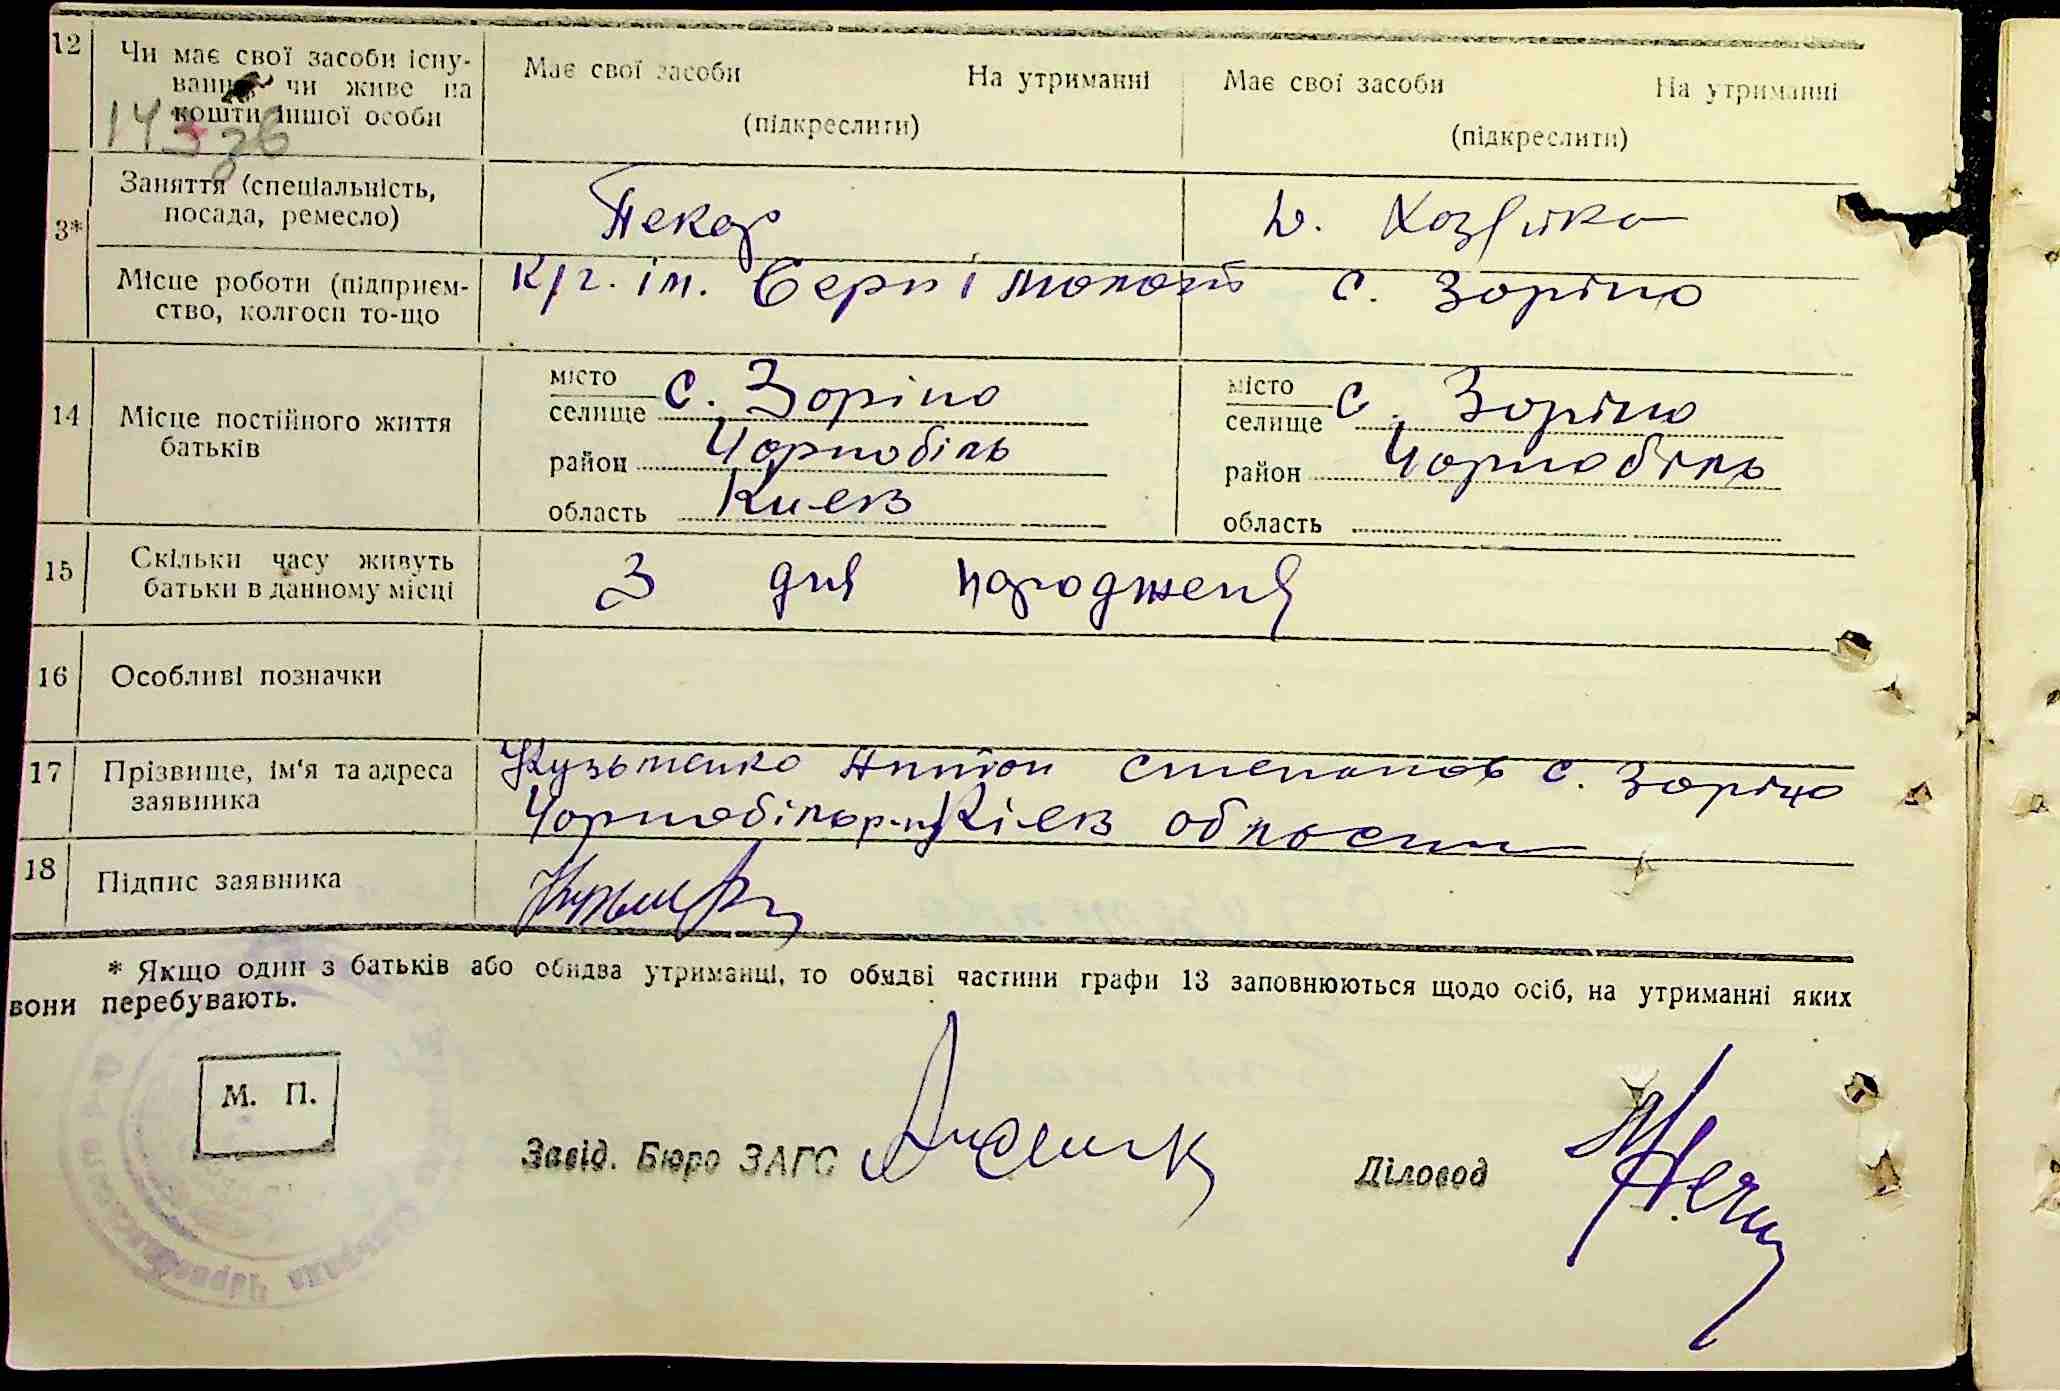 12 Чи має свої засоби існу-
вання чи живе на
кошти іншої особи
Має свої засоби На утриманні
(підкреслити)
Має свої засоби На утриманні
(підкреслити)
3* Заняття (спеціальність,
посада, ремесло)
Пекар
д. Хозяйка
Місце роботи (підприєм-
ство, колгосп то-що
К/г. ім. Серп і молот с. Зоріно
14 Місце постійного життя
батьків
місто
селище с. Зоріно
район Чорнобіль
область Киев
місто
селище с. Зоріно
район Чорнобіль
область
15 Скільки часу живуть
батьки в данному місці
З дня народженя
16 Особливі позначки
17 Прізвище, ім'я та адреса
заявника
Кузьменко Антон Степанов с. Зоріно
Чорнобіль р-н Кіев области
18 Підпис заявника
* Якщо один з батьків або обидва утриманці, то обидві частини графи 13 заповнюються щодо осіб, на утриманні яких
вони перебувають.
М. П.
Завід. Бюро ЗАГС
Діловод